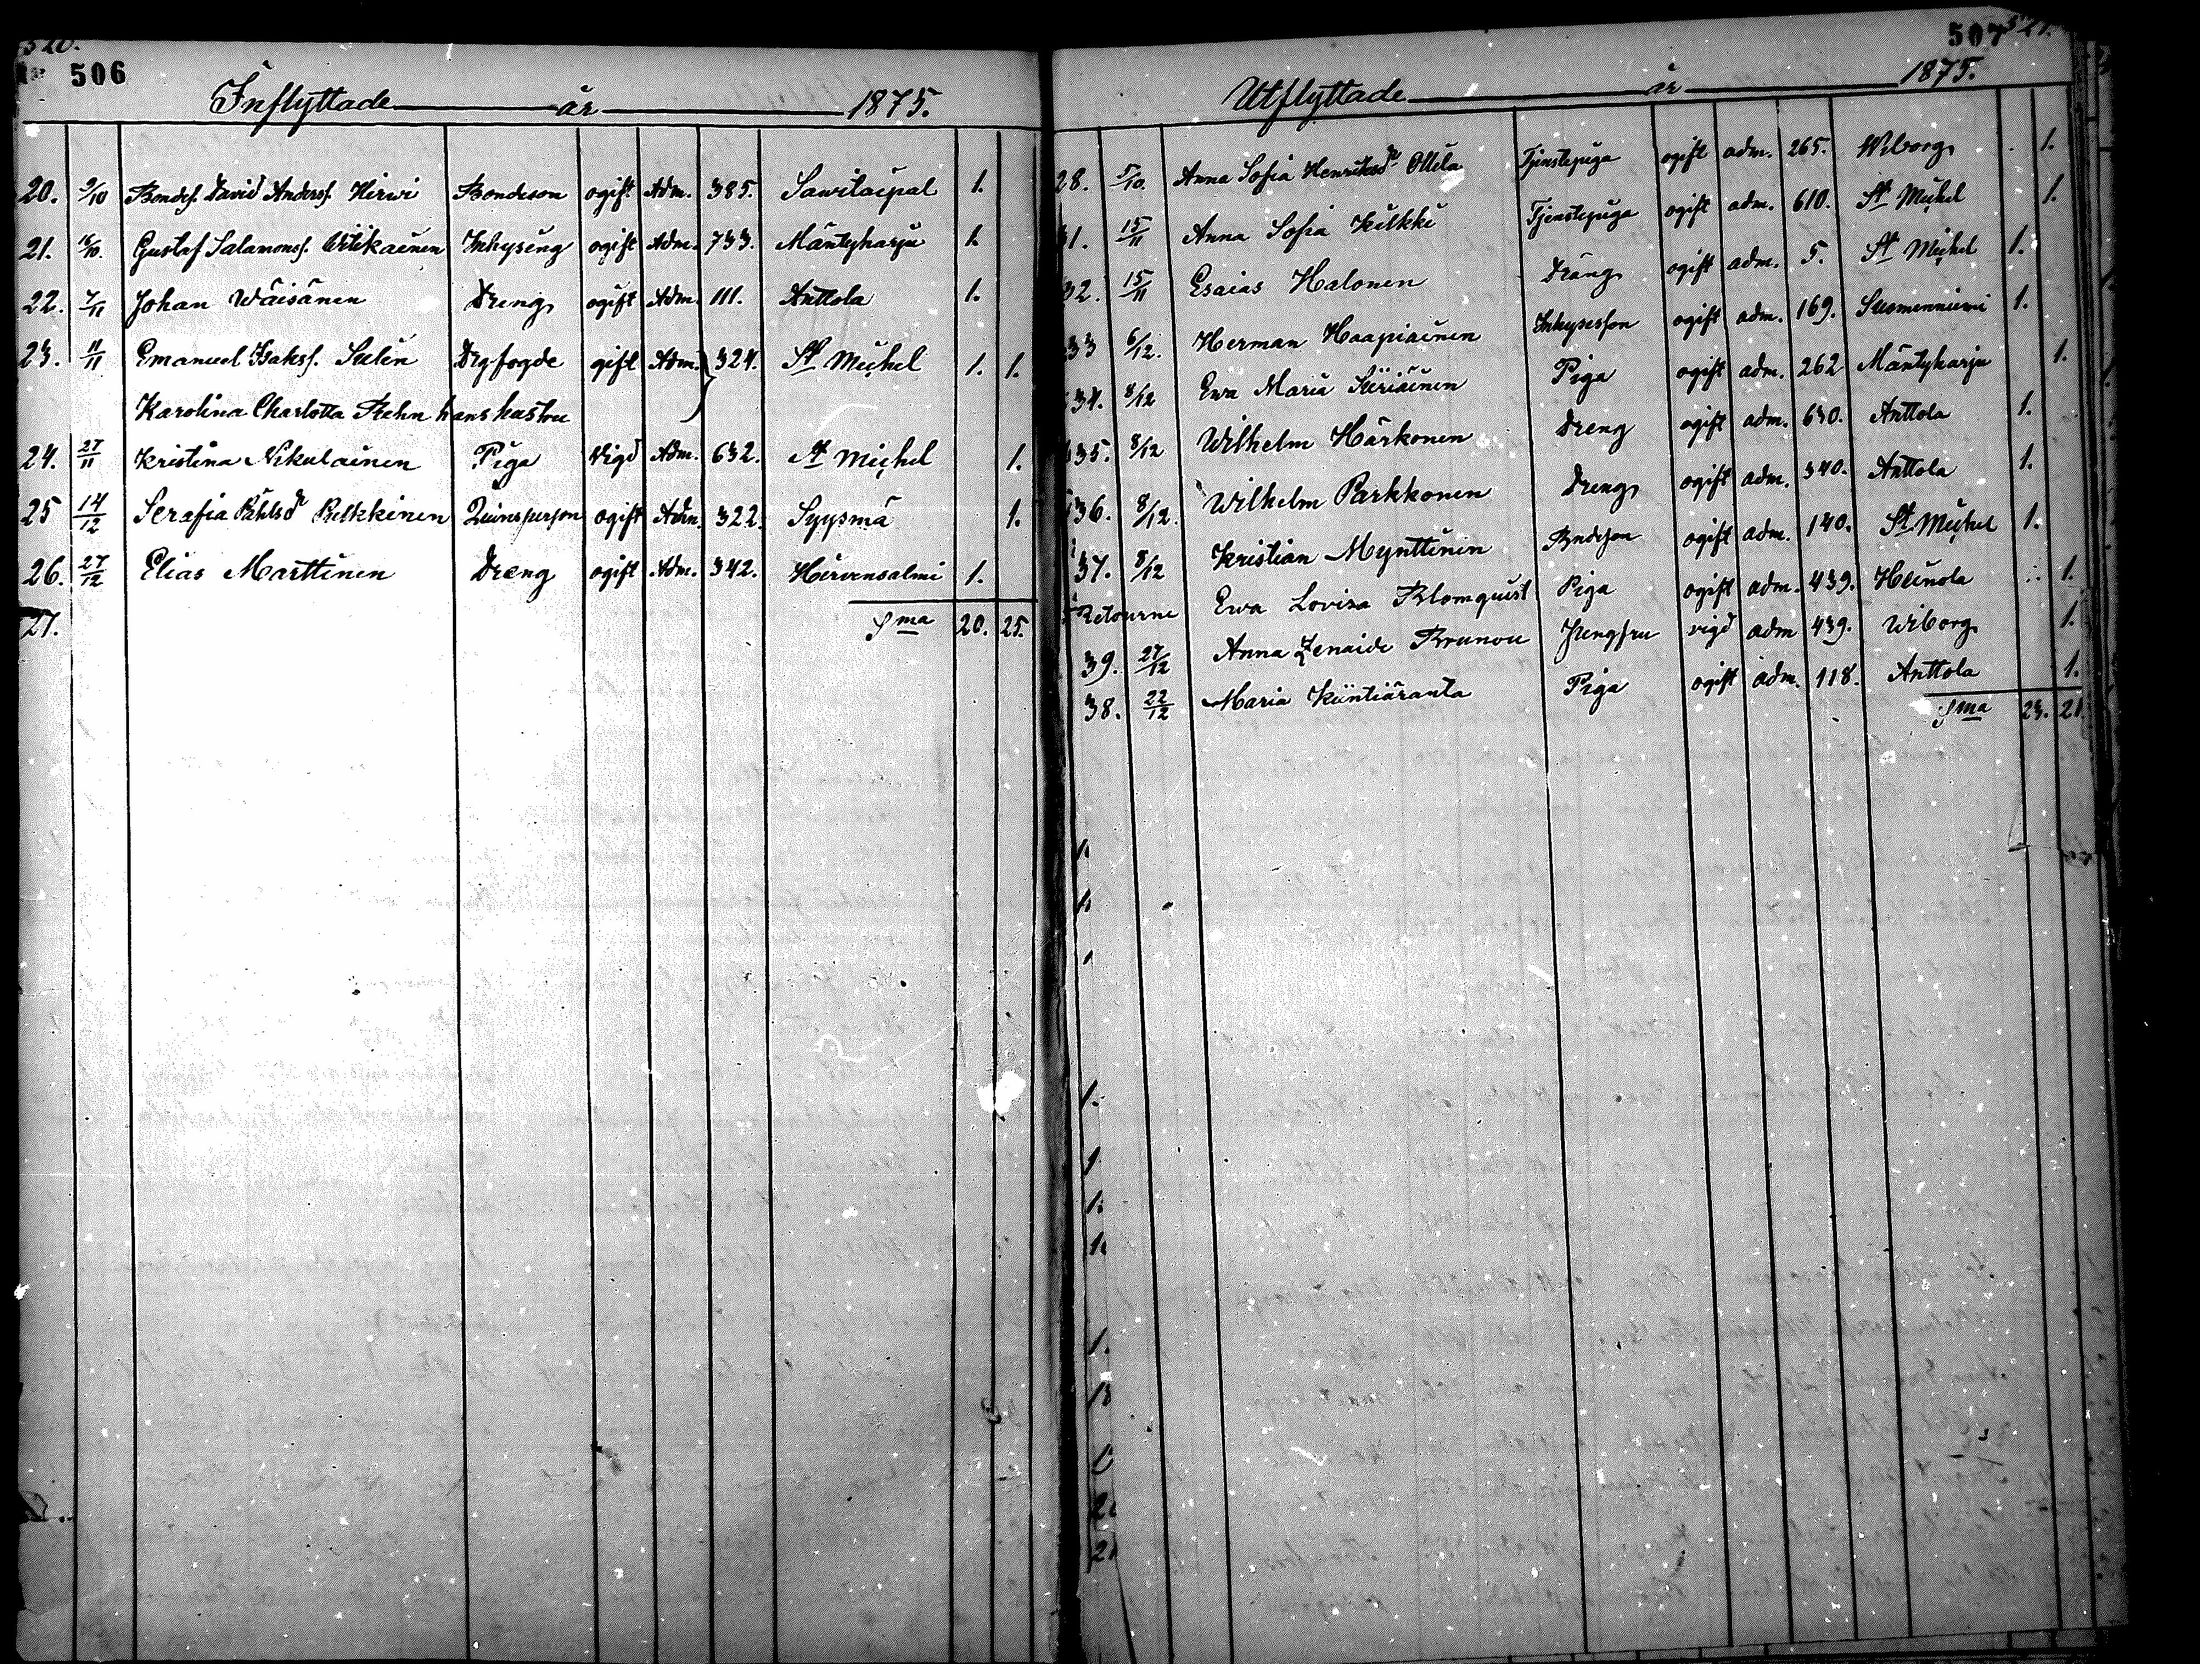 506
Inflyttade år 1875.
20. 9/10 Bondes. David Anderss. Hirwi Bondeson ogift Adm. 385. Sawitaipal 1.
21. 16/10. Gustaf Salamonss. Witikainen Inhysing ogift Adm. 733. Mäntyharju 1.
22. 7/11 Johan Wäisänen Dreng ogift Adm. 111. Anttola 1.
23. 11/11 Emanuel Isakss. Sulin gift Adm. 324. St Michel 1. 1.
Karolina Charlotta Rehn hans hustru
24. 27/11 Kristina Nikulainen Piga Vigd Adm. 632. St Michel 1.
25 14/12 Serafia Påhlsdr Pelkkinen Qvinsperson ogift Adm. 322. Sysmä 1.
26. 27/12 Elias Marttinen Dreng ogift Adm. 342. Hirvensalmi 1.
27. Sma 20. 25.
507
Utflyttade år 1875.
28. 5/10. Anna Sofia Henriksdr Ollila Tjenstepiga ogift adm. 265. Wiborg 1.
31. 15/11 Anna Sofia Kilkki Tjenstepiga ogift adm. 610. St Michel 1.
32. 15/11 Esaias Halonen Dräng ogift adm. 5. St Michel 1.
33 6/12. Herman Haapiainen Inhysesson ogift adm. 169. Suomenniemi 1.
34. 8/12 Ewa Maria Siiriäinen Piga ogift adm. 262 Mäntyharju 1.
35. 8/12 Wilhelm Härkönen Dreng ogift adm. 630. Anttola 1.
36. 8/12. Wilhelm Parkkonen Dreng ogift adm. 340. Anttola 1.
37. 8/12 Kristian Mynttinen Bondeson ogift adm. 140. St Michel 1.
Retourne Ewa Lovisa Blomquist Piga ogift adm. 439. Heinola 1.
39. 27/12 Anna Zenaide Brunou Jungfru vigd adm 439. Wiborg 1.
38. 22/12 Maria Kiintiäranta Piga ogift adm. 118. Anttola 1.
Sma 23. 21